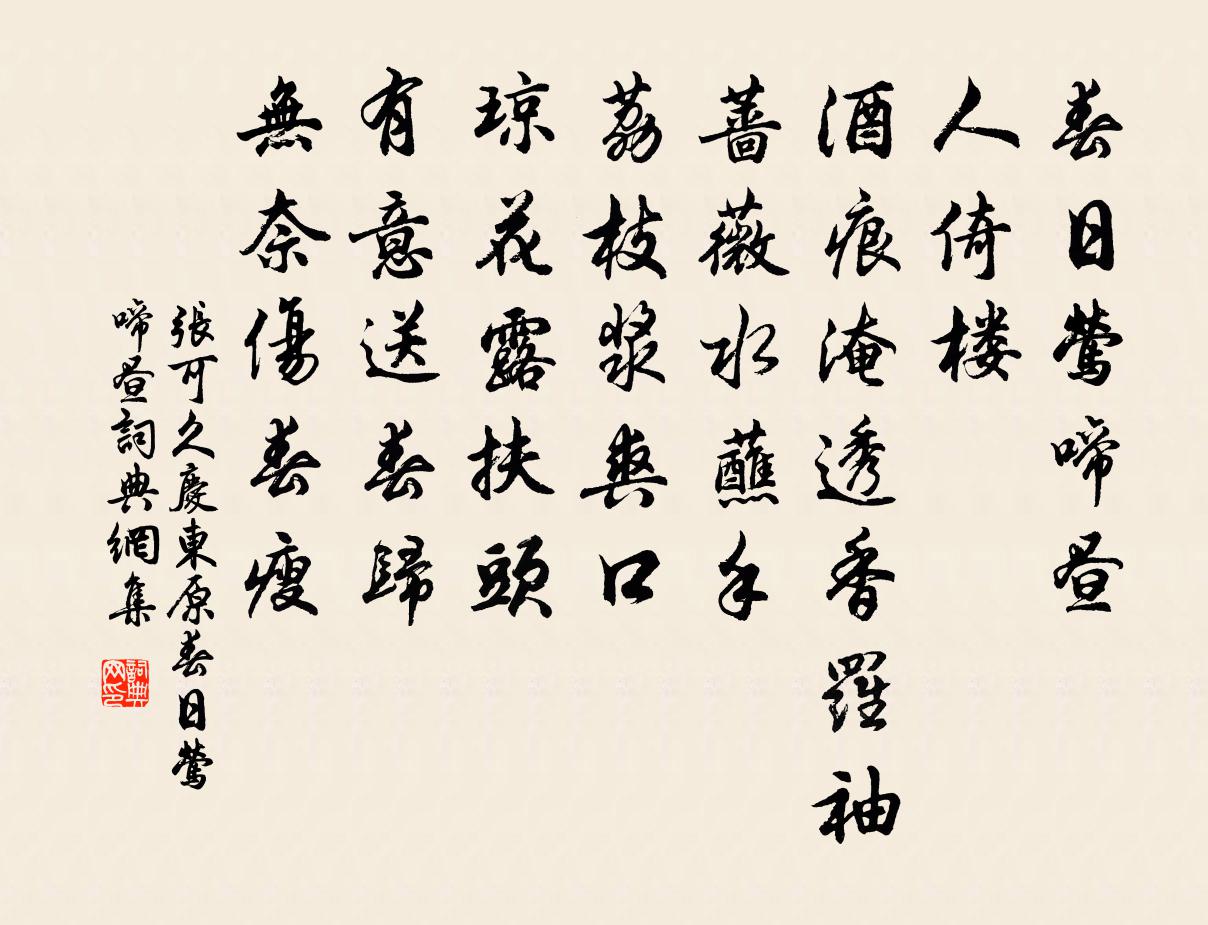 春日鶯啼昼
人倚楼
酒痕淹透香羅袖
蔷薇水蘸手
荔枝漿爽口
琼花露扶頭
有意送春歸
無奈傷春瘦
張可久慶東原春日鶯
啼昼詞典網集
詞典网印